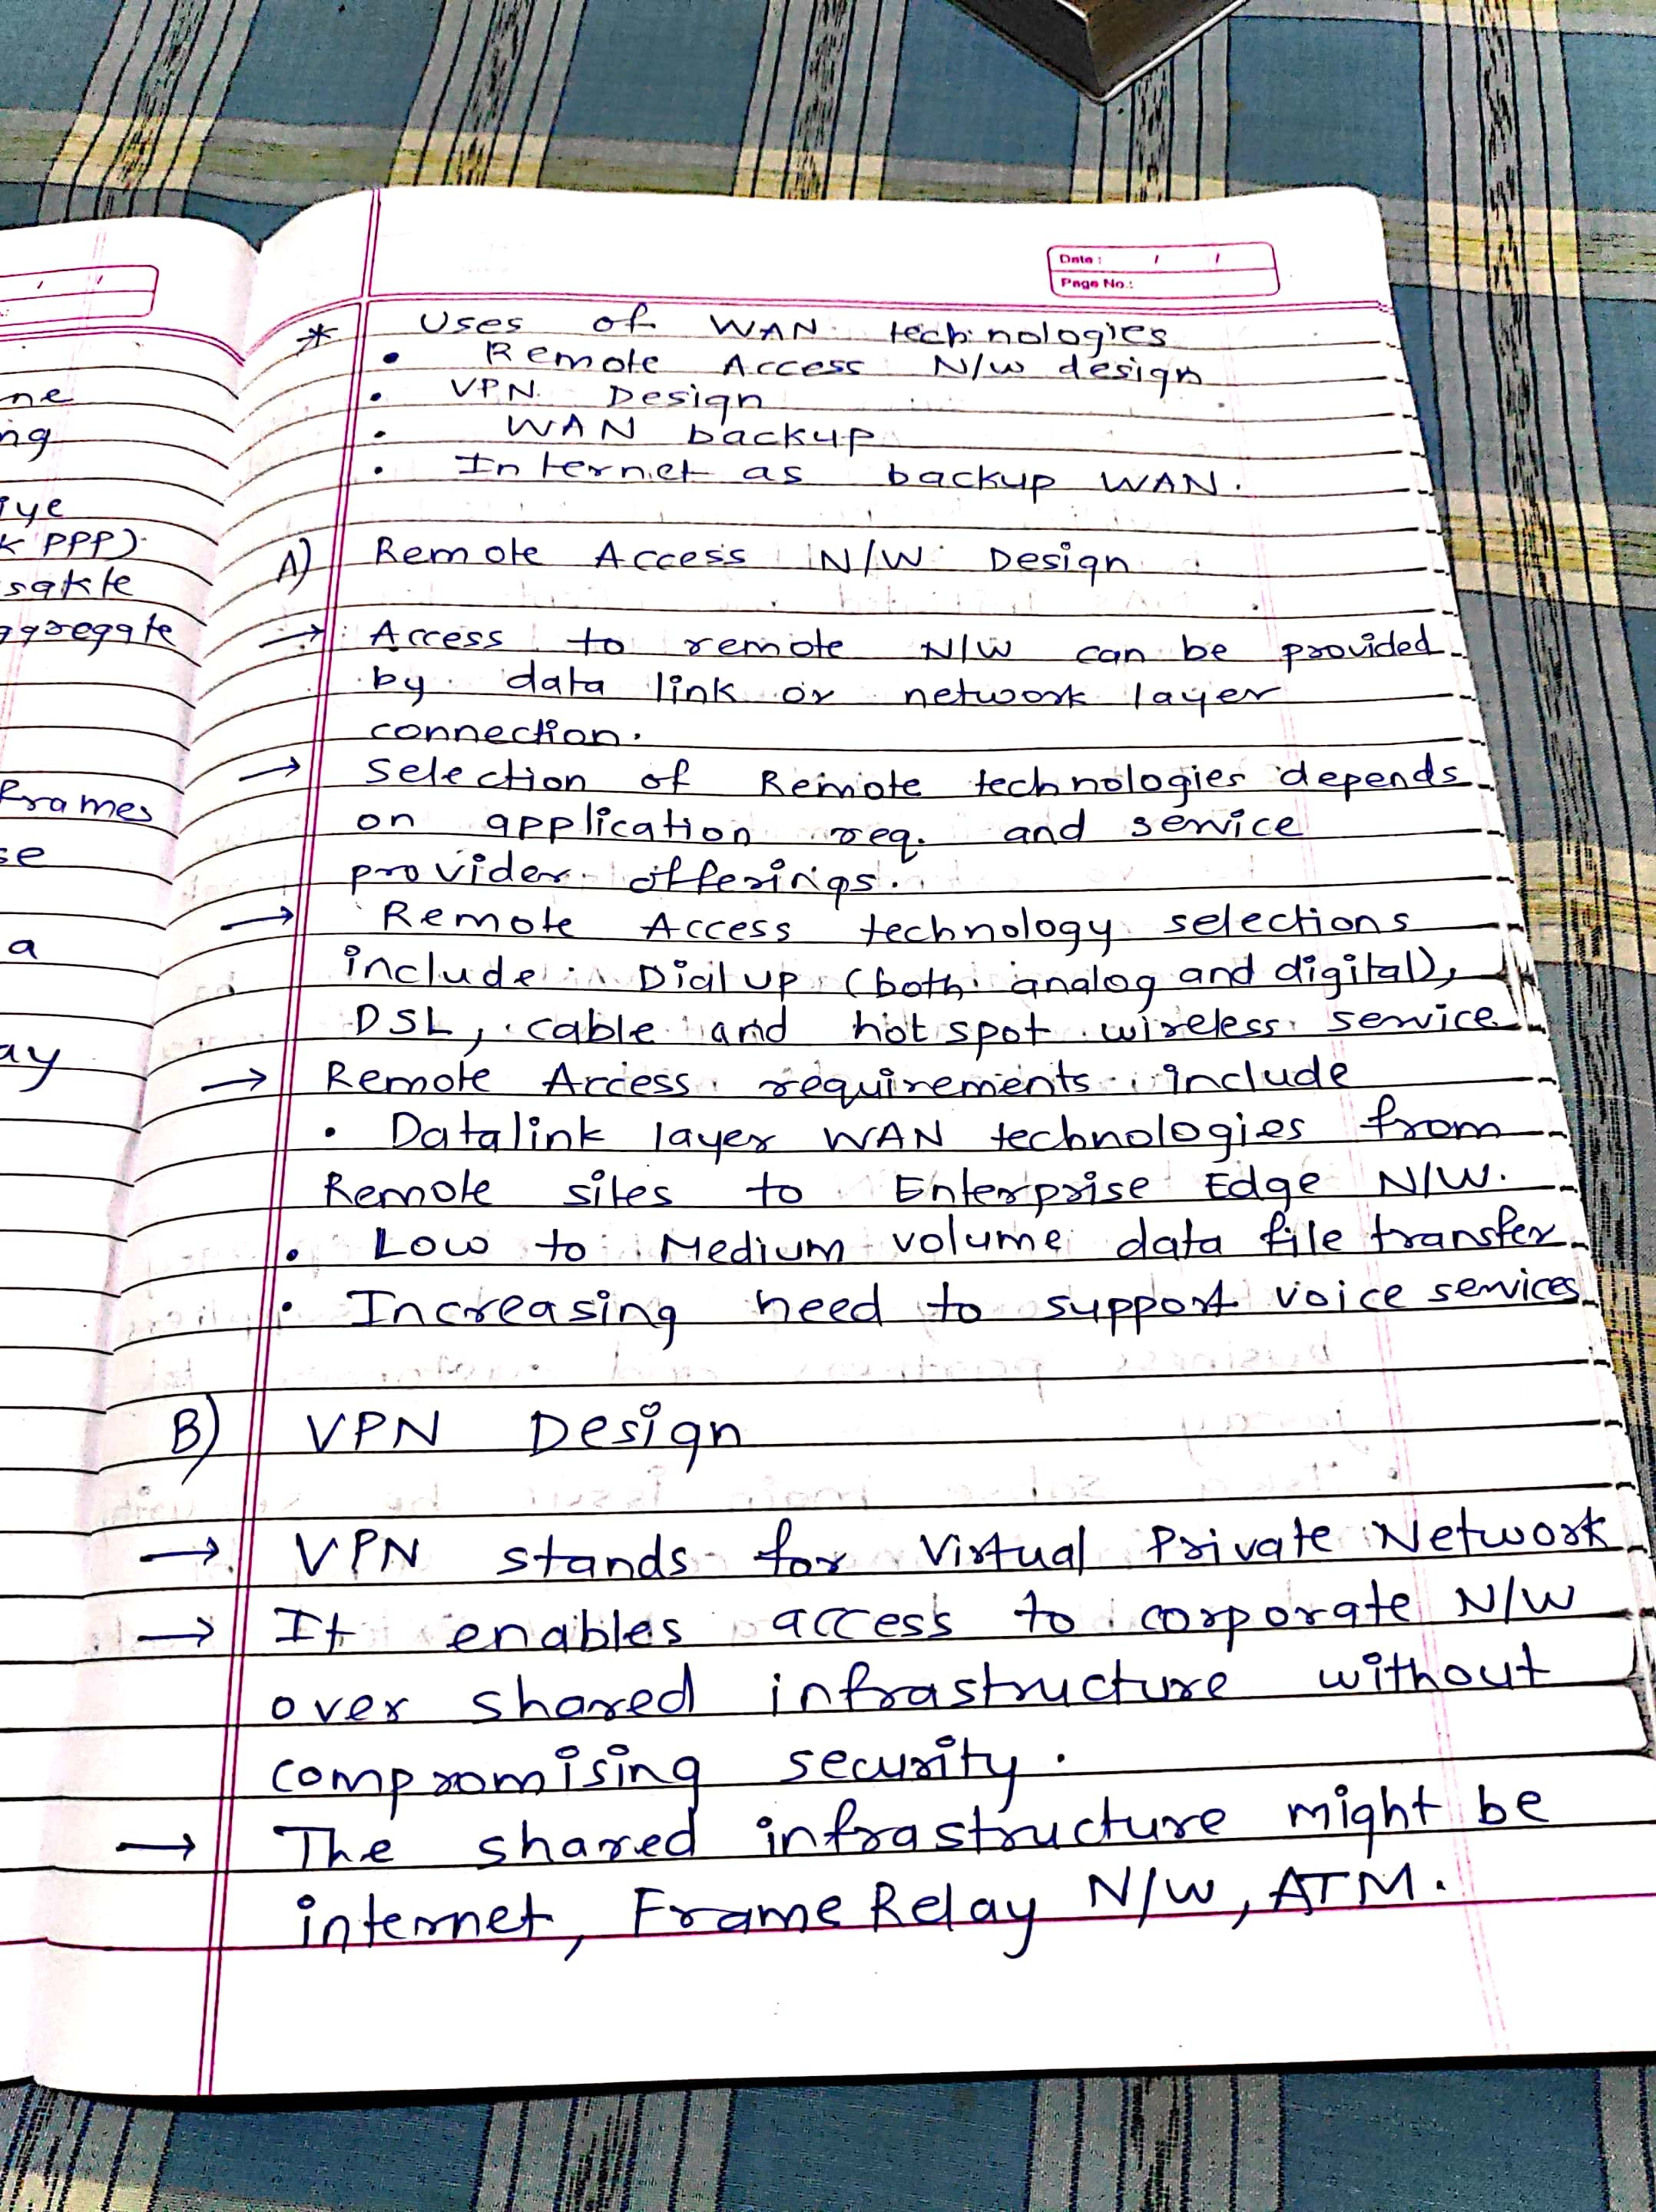 ne
ng
iye
K PPP)
sakte
aggregate
Frames
se
a
ay
Date : / /
Page No.:
* Uses of WAN technologies
• Remote Access N/W design
• VPN Design
• WAN backup
• Internet as backup WAN.
A) Remote Access N/W Design
→ Access to remote N/W can be provided
by data link or network layer
connection.
→ Selection of Remote technologies depends
on application req. and service
provider offerings.
→ Remote Access technology selections
include Dial up (both analog and digital),
DSL, cable and hot spot wireless service
→ Remote Access requirements include
• Datalink layer WAN technologies from
Remote sites to Enterprise Edge N/W.
• Low to Medium volume data file transfer
• Increasing need to support voice services
B) VPN Design
→ VPN stands for Virtual Private Network
→ It enables access to corporate N/W
over shared infrastructure without
compromising security.
→ The shared infrastructure might be
internet, Frame Relay N/W, ATM.